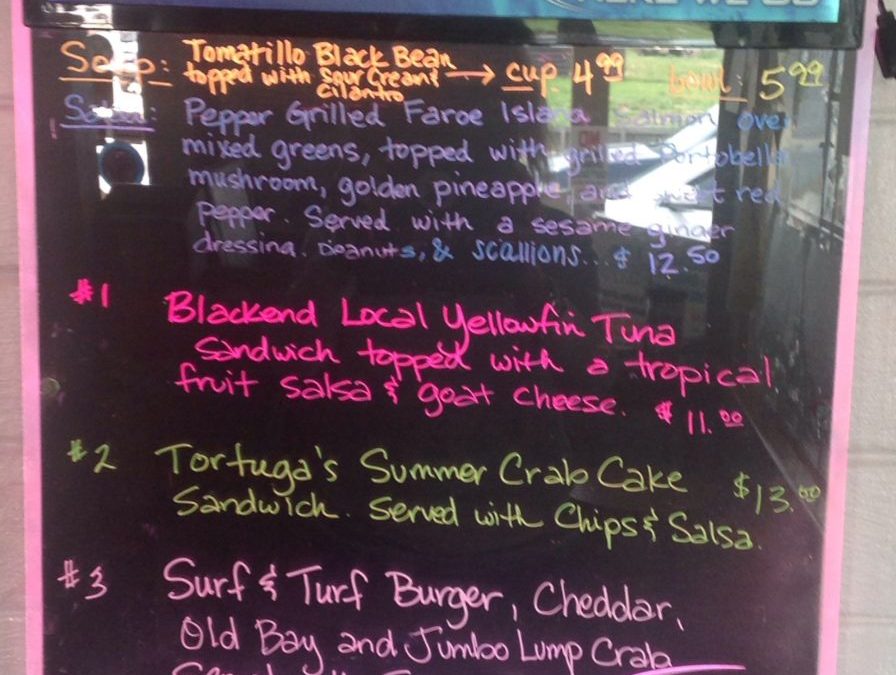 HERE WE GO
Soup: Tomatillo Black Bean
topped with Sour Cream &
cilantro → cup 4.99 bowl: 5.99
Salad: Pepper Grilled Faroe Island Salmon over
mixed greens, topped with grilled Portobella
mushroom, golden pineapple, and sweet red
Pepper. Served with a sesame ginger
dressing. peanuts, & scallions...$ 12.50
#1 Blackend Local Yellowfin Tuna
Sandwich topped with a tropical
fruit salsa & goat cheese. $ 11.00
#2 Tortuga's Summer Crab Cake $13.00
Sandwich. Served with Chips & Salsa.
#3 Surf & Turf Burger, Cheddar,
Old Bay and Jumbo Lump Crab